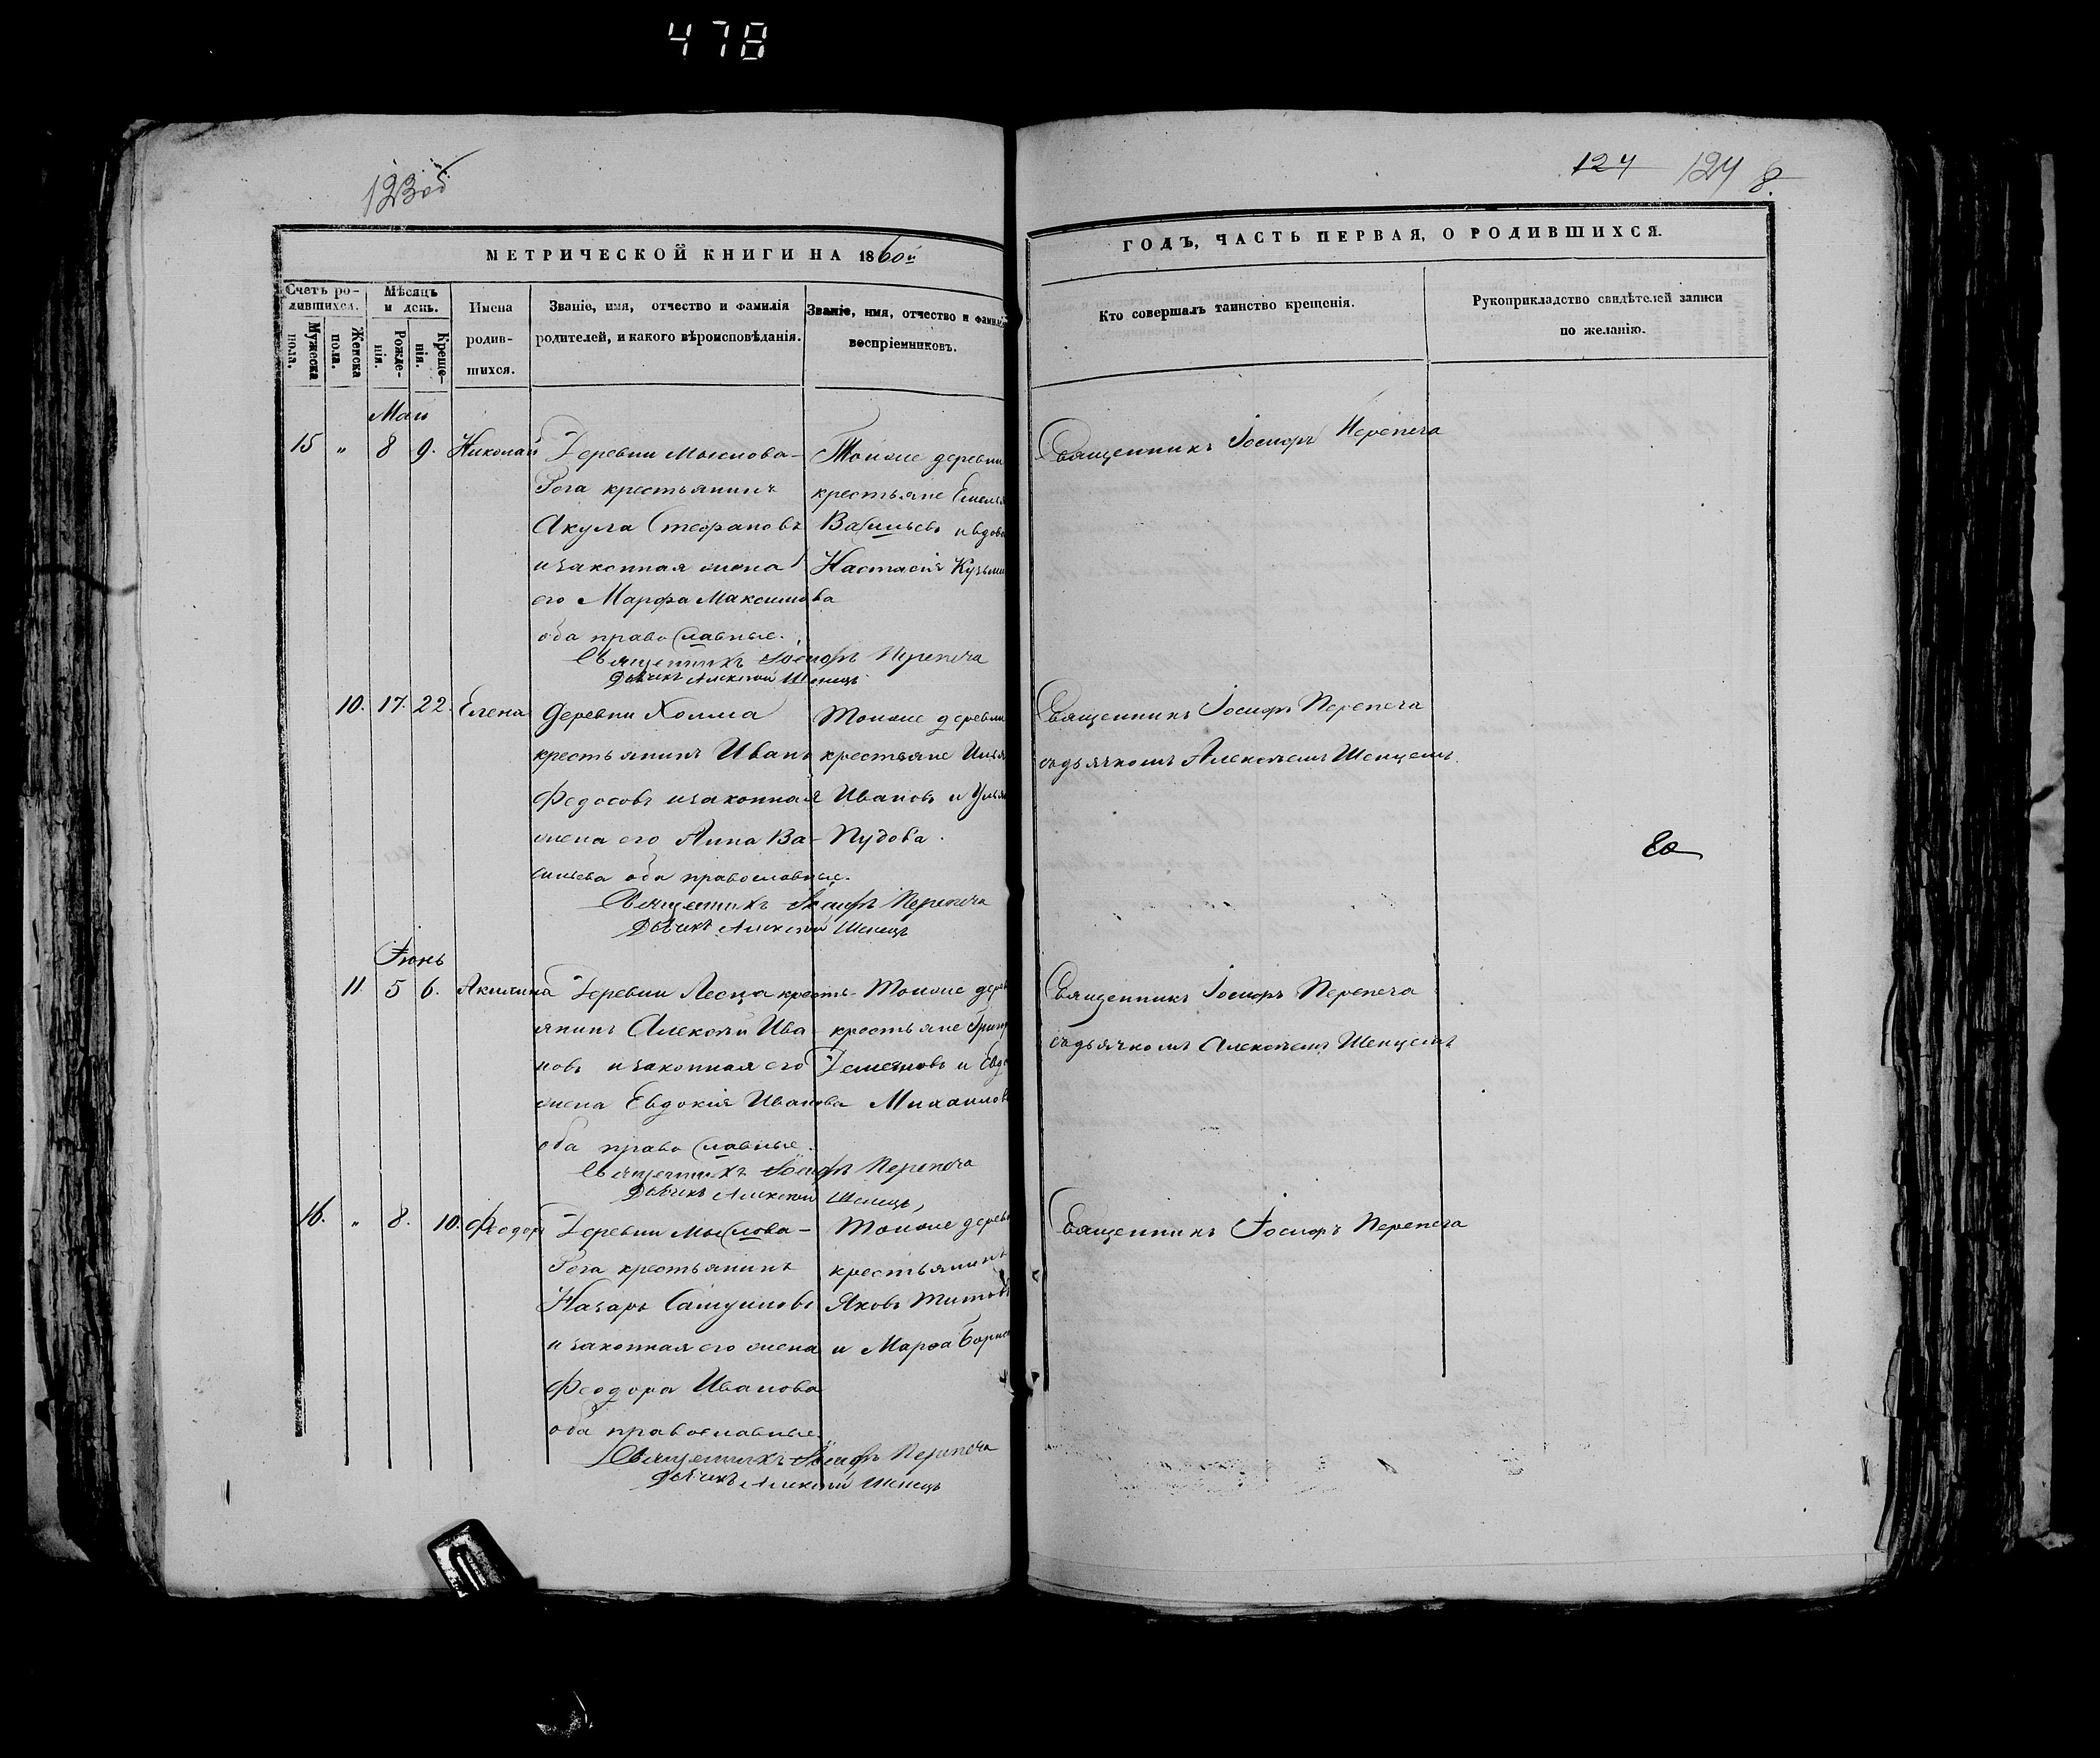 478
123 об
124 124 8.
МЕТРИЧЕСКОЙ КНИГИ НА 1860й
ГОДЪ, ЧАСТЬ ПЕРВАЯ, О РОДИВШИХСЯ.
Счетъ ро-
дившихся.
Мужеска
пола.
Женска
пола.
Мѣсяцъ
и день.
Рожде-
нія.
Креще-
нія.
Имена
родив-
шихся.
Званіе, имя, отчество и фамилія
родителей, и какого вѣроисповѣданія.
Званіе, имя, отчество и фамилія
воспріемниковъ.
Кто совершалъ таинство крещенія.
Рукоприкладство свидѣтелей записи
по желанію.
Маи
15 " 8 9. Николай
Деревни Мыслова-
Рога крестьянинъ
Акула Стефановъ
и законная жена
его Марфа Максимова
оба православные.
Тойже деревни
крестьяне Емелья
Васильевъ и вдова
Настасія Кузьми
Священникъ Іосифъ Перепеча
Священникъ Іосифъ Перепеча
Дьячекъ Алексѣй Шенецъ
10. 17. 22. Елена
Деревни Холма
крестьянинъ Иванъ
Федосовъ и законная
жена его Анна Ва-
сильева оба православные.
Тойже деревни
крестьяне Илья
Ивановъ и Улья
Пудова.
Священникъ Іосифъ Перепеча
съ дьячкомъ Алексѣемъ Шенцемъ.
Священникъ Іосифъ Перепеча
Дьячекъ Алексѣй Шенецъ
Іюнь
11. 5 6. Акилина
Деревни Лесца кресть-
янинъ Алексѣй Ива-
новъ и законная его
жена Евдокія Иванова
оба православные.
Тойже дерев
крестьяне Григ
Дементовъ и Евдо
Михаилов
Священникъ Іосифъ Перепеча
съ дьячкомъ Алексѣемъ Шенцемъ
Священникъ Іосифъ Перепеча
Дьячекъ Алексѣй Шенецъ,
16. " 8. 10. Феодоръ
Деревни Мыслова-
Рога крестьянинъ
Назаръ
и законная его жена
Феодора Иванова
оба православные.
Тойже дерев
крестьянинъ
Яковъ Титовъ
и Марѳа Борис
Священникъ Іосифъ Перепеча
Священникъ Іосифъ Перепеча
Дьячекъ Алексѣй Шенецъ